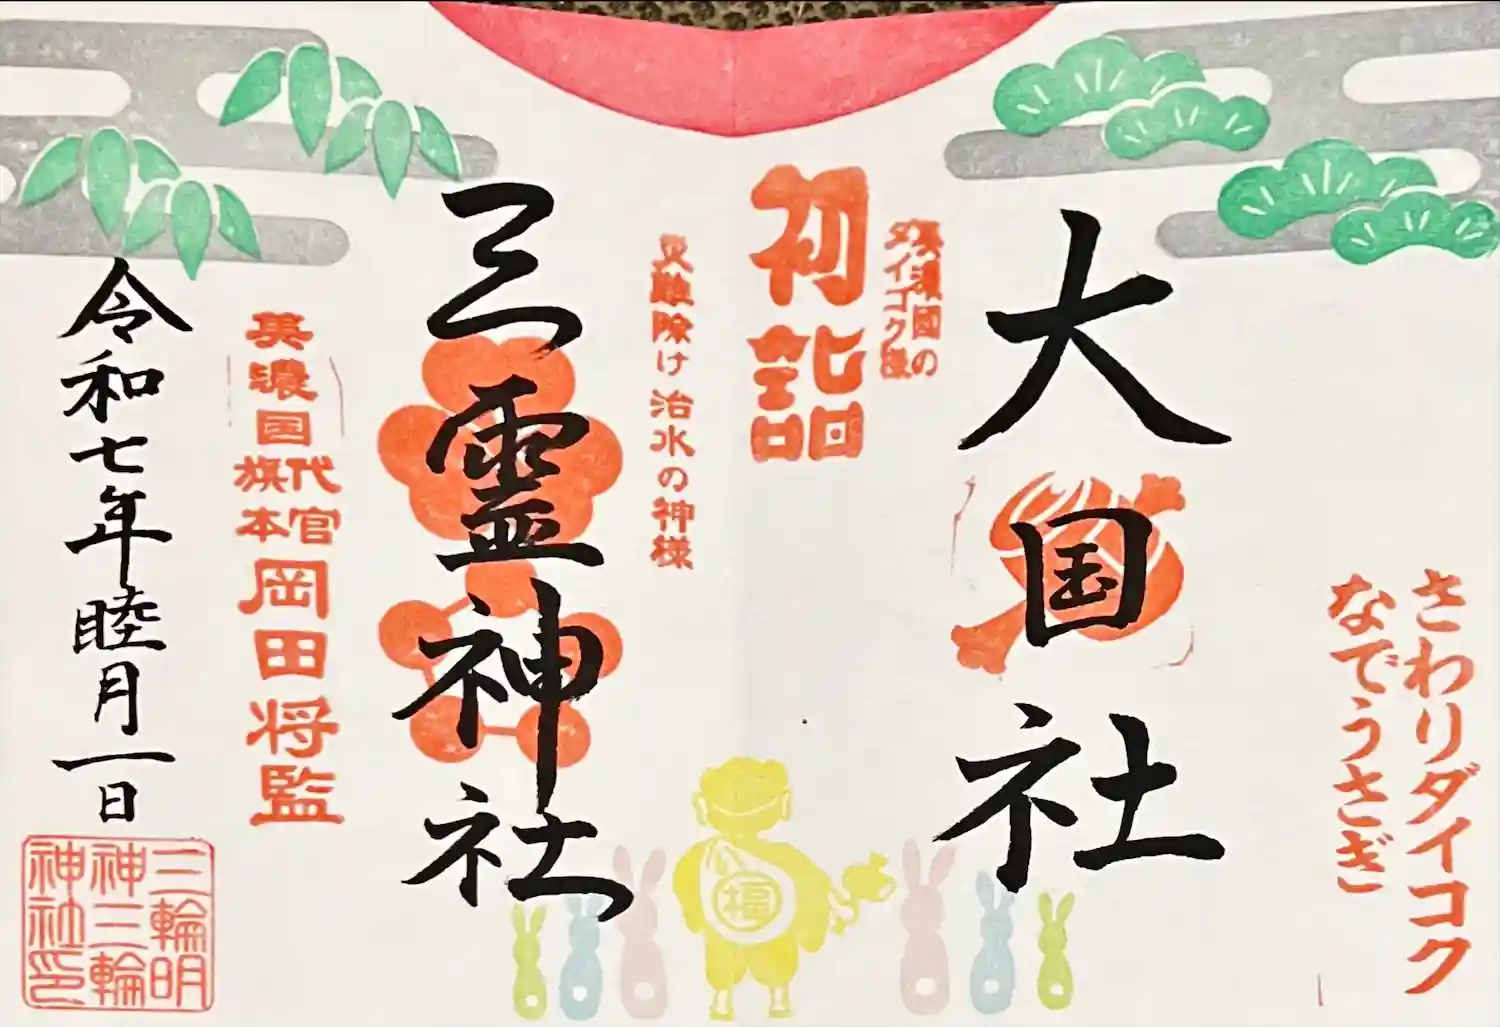 さわりダイコク
なでうさぎ
大国社
美濃國の
ダイコク様
初詣
災難除け 治水の神様
三霊神社
美濃国
代官
旗本
岡田将監
令和七年睦月一日
三輪明
神三輪
神社印
福